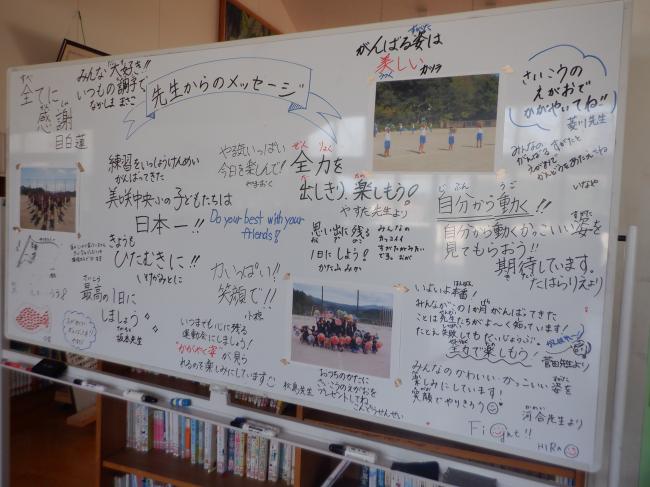 全てに
感謝
目白蓮
みんな大好き!!
いつもの調子で
なかしま まさこ
先生からのメッセージ
がんばる姿は
美しい
さいこうの
えがおで
かがやいてね!!
菱川先生
練習をいっしょうけんめい
がんばってきた
美咲中央小の子どもたちは
日本一!!
きょうも
ひたむきに!!
いけがみひとこ
最高の1日に
しましょう
坂本先生
やる気いっぱい
今日を楽しんで!
Do your best with your
friends!
全力を
出しきり、楽しもう!
やすた先生より
思い出に残る
1日にしよう!
かたふみか
みんなの
カッコイイ
すがたがみたい
です。
自分から動く!!
自分から動くかっこいい姿を
見てもらおう!!
期待しています。
たはらりえより
みんなの
がんばるすがたと
えがおで
いなや
力いっぱい!!
笑顔で!!
小枝
いつまでも心に残る
運動会にしましょう!
"かがやく姿"が見ら
れるのを楽しみにしています
松島先生
おうちのかたに
さいこうのえがおを
プレゼントしてね
こんどうせんせい
いよいよ本番!
みんながこの1か月がんばってきた
ことは先生たちがよ〜く知っています!
たとえ失敗してもだいじょうぶ!
全力で楽しもう!
菅田先生より
みんなのかわいい・かっこいい姿を
楽しみにしています!
笑顔でやりきろう
河合先生より
Fight!!
HIRO